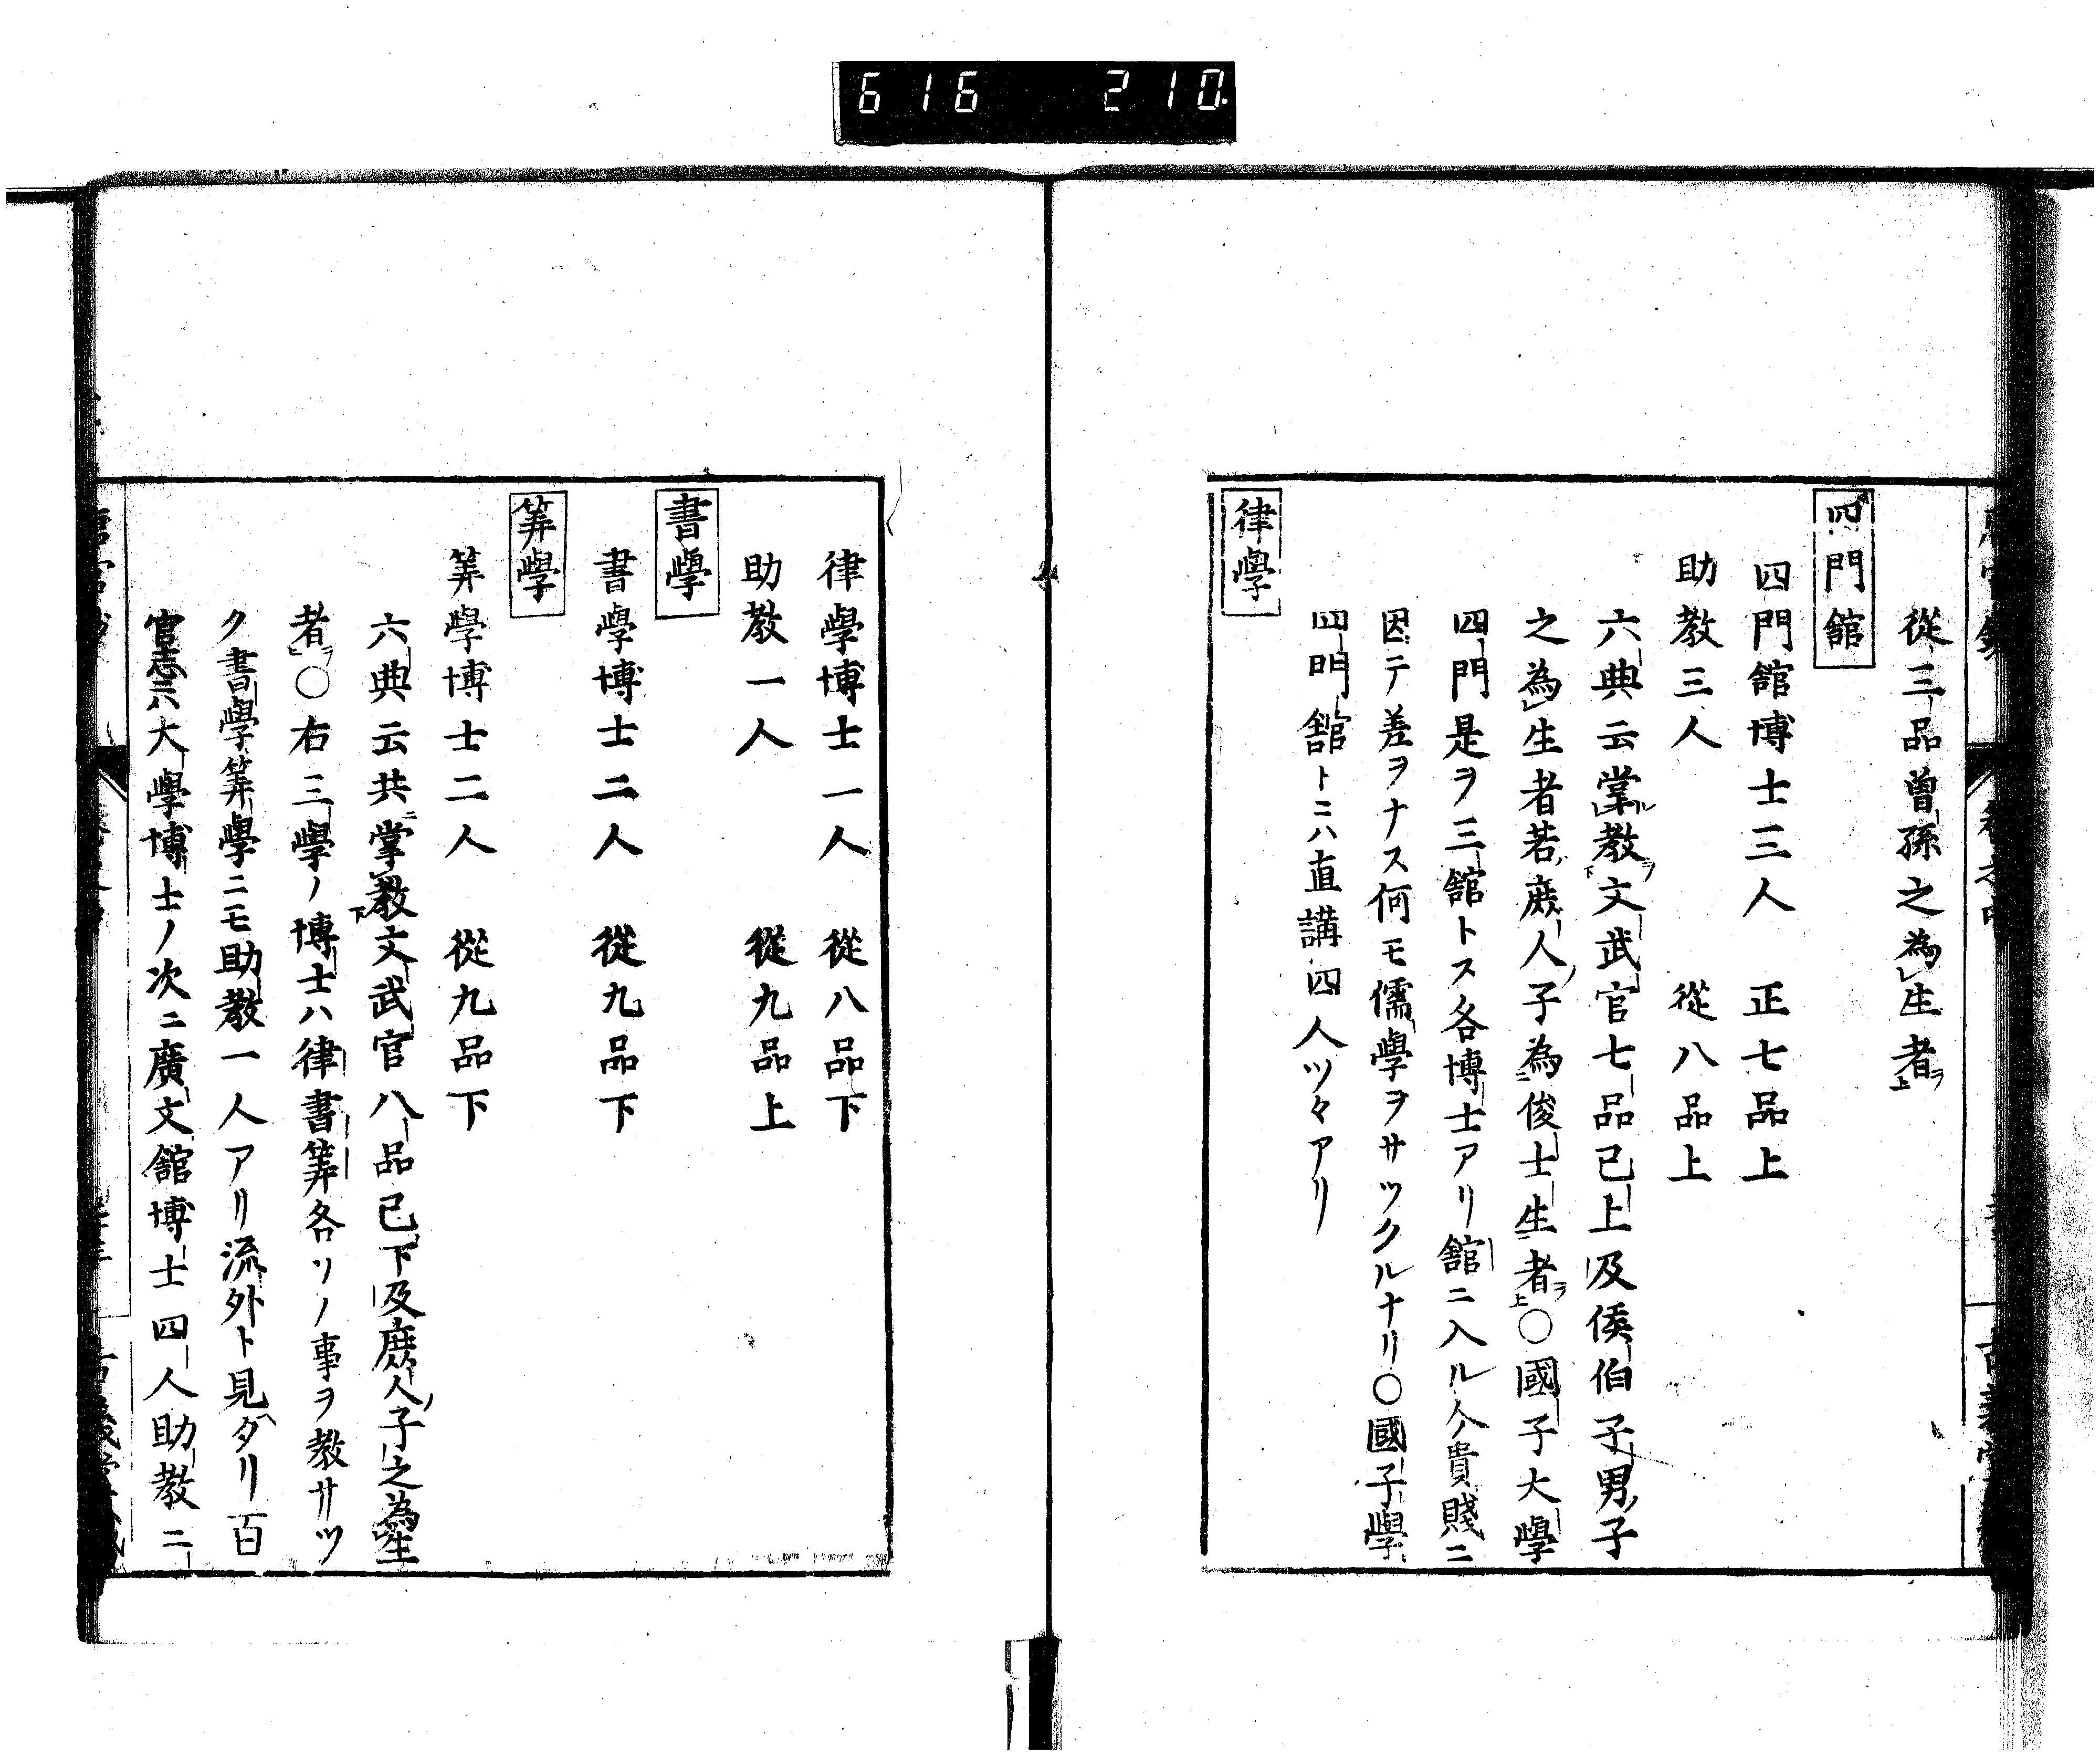 616 210
從三品曽孫之為生者ヲ上
四門舘
四門舘博士三人 正七品上
助教三人 從八品上
六典云掌ル教ヲ下文武官七品已上及侯伯子男ノ子
之為生者若庶人ノ子為俊士生者ヲ上〇國子大學
四門是ヲ三舘トス各博士アリ舘ニ入ル人貴賤ニ
因テ差ヲナス何モ儒學ヲサツクルナリ〇國子學
四門舘トニハ直講四人ツヽアリ
律學
律學博士一人 從八品下
助教一人 從九品上
書學
書學博士二人 從九品下
筭學
筭學博士二人 從九品下
六典云共ニ掌教下文武官八品已下及庶人ノ子之為生
者ヲ上〇右三學ノ博士ハ律書筭各ソノ事ヲ教サツ
ク書學筭學ニモ助教一人アリ流外ト見ヘタリ百
官志ニハ大學博士ノ次ニ廣文舘博士四人助教ニ